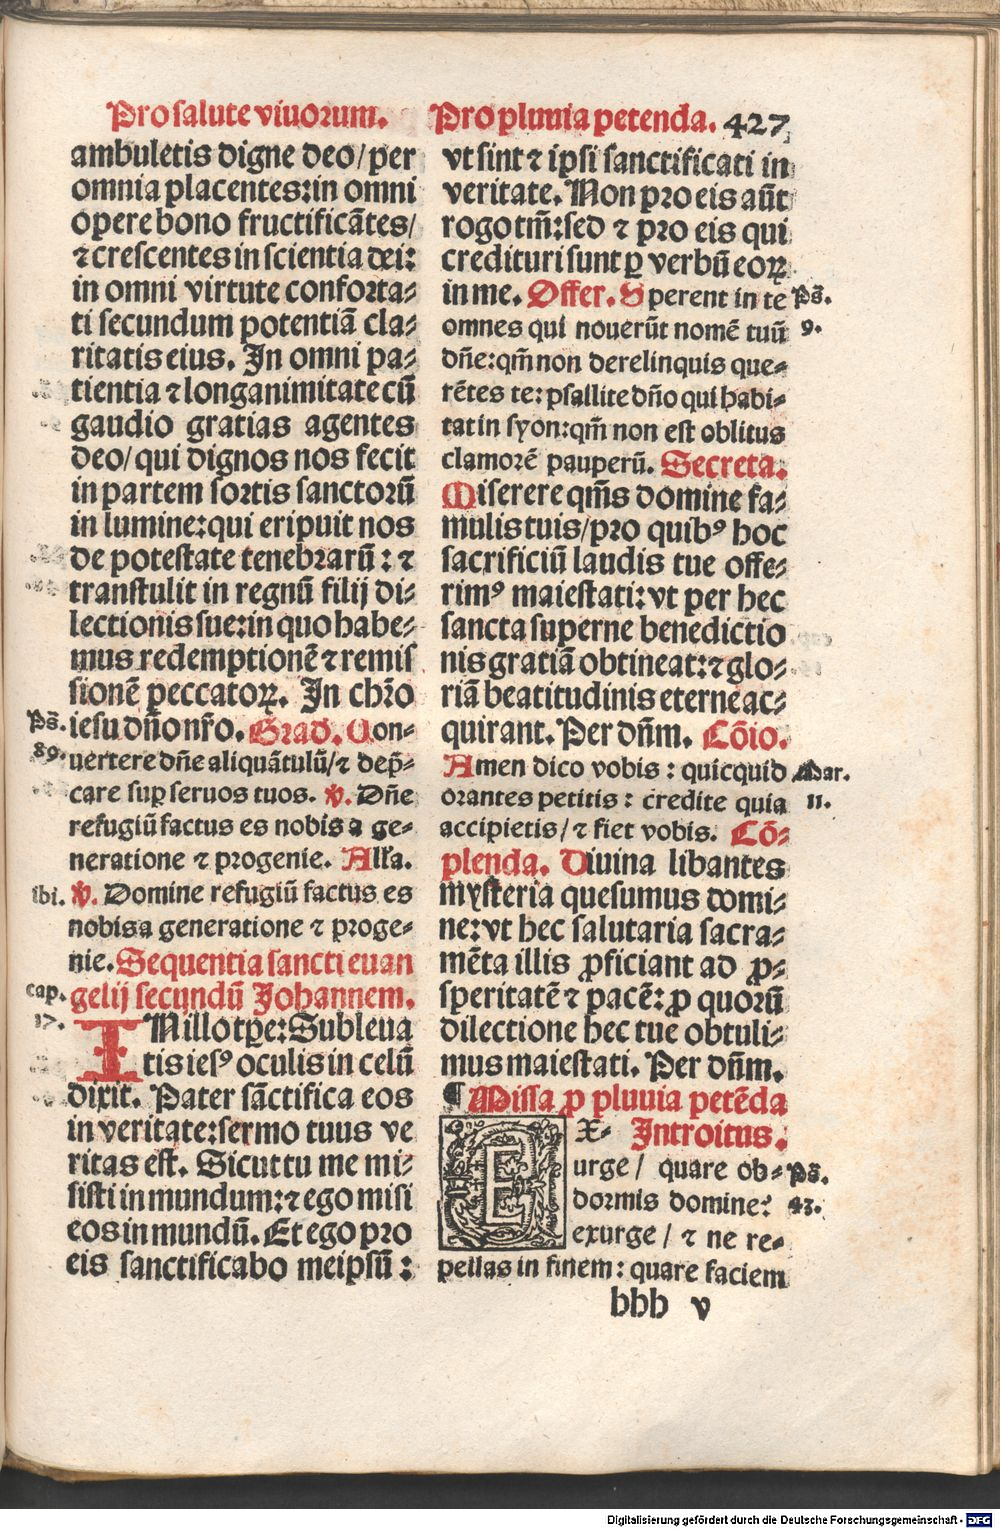 Pro salute viuorum.
ambuletis digne deo/ per
omnia placentes: in omni
opere bono fructificātes/
⁊ crescentes in scientia dei:
in omni virtute conforta⸗
ti secundum potentiā cla⸗
ritatis eius. In omni pa⸗
tientia ⁊ longanimitate cū
gaudio gratias agentes
deo/ qui dignos nos fecit
in partem sortis sanctorū
in lumine: qui eripuit nos
de potestate tenebrarū: ⁊
transtulit in regnū filij di⸗
lectionis sue: in quo habe⸗
mus redemptionē ⁊ remis
sionē peccatoꝝ. In chr̄o
Ps̄. iesu dn̄o nr̄o. Grad. Con⸗
89. uertere dn̄e aliquātulū/ ⁊ dep̄⸗
care suꝑ seruos tuos. ℣. Dn̄e
refugiū factus es nobis a ge⸗
neratione ⁊ progenie. Alĺa.
ibi. ℣. Domine refugiū factus es
nobis a generatione ⁊ proge⸗
nie. Sequentia sancti euan
cap. gelij secundū Johannem.
17. IN illo tꝑe: Subleua
tis iesꝰ oculis in celū
dixit. Pater sāctifica eos
in veritate: sermo tuus ve
ritas est. Sicut tu me mi⸗
sisti in mundum: ⁊ ego misi
eos in mundū. Et ego pro
eis sanctificabo meipsū:
Pro pluuia petenda. 427
vt sint ⁊ ipsi sanctificati in
veritate. Non pro eis aūt
rogo tm̄: sed ⁊ pro eis qui
credituri sunt ꝑ verbū eoꝝ
in me. Offer. Sperent in te Ps̄.
omnes qui nouerūt nomē tuū 9.
dn̄e: qm̄ non derelinquis que⸗
rētes te: psallite dn̄o qui habi⸗
tat in syon: qm̄ non est oblitus
clamorē pauperū. Secreta.
Miserere qm̄s domine fa⸗
mulis tuis/ pro quibꝰ hoc
sacrificiū laudis tue offe⸗
rimꝰ maiestati: vt per hec
sancta superne benedictio
nis gratiā obtineat: ⁊ glo⸗
riā beatitudinis eterne ac⸗
quirant. Per dn̄m. Cōio.
Amen dico vobis: quicquid Mar.
orantes petitis: credite quia 11.
accipietis/ ⁊ fiet vobis. Cō⸗
plenda. Diuina libantes
mysteria quesumus domi⸗
ne: vt hec salutaria sacra⸗
mēta illis ꝓficiant ad ꝓ⸗
speritatē ⁊ pacē: ꝓ quorū
dilectione hec tue obtuli⸗
mus maiestati. Per dn̄m.
¶ Missa ꝓ pluuia petēda
EX⸗ Introitus.
urge/ quare ob⸗ Ps̄.
dormis domine? 43.
exurge/ ⁊ ne re⸗
pellas in finem: quare faciem
bbb v
Digitalisierung gefördert durch die Deutsche Forschungsgemeinschaft - DFG